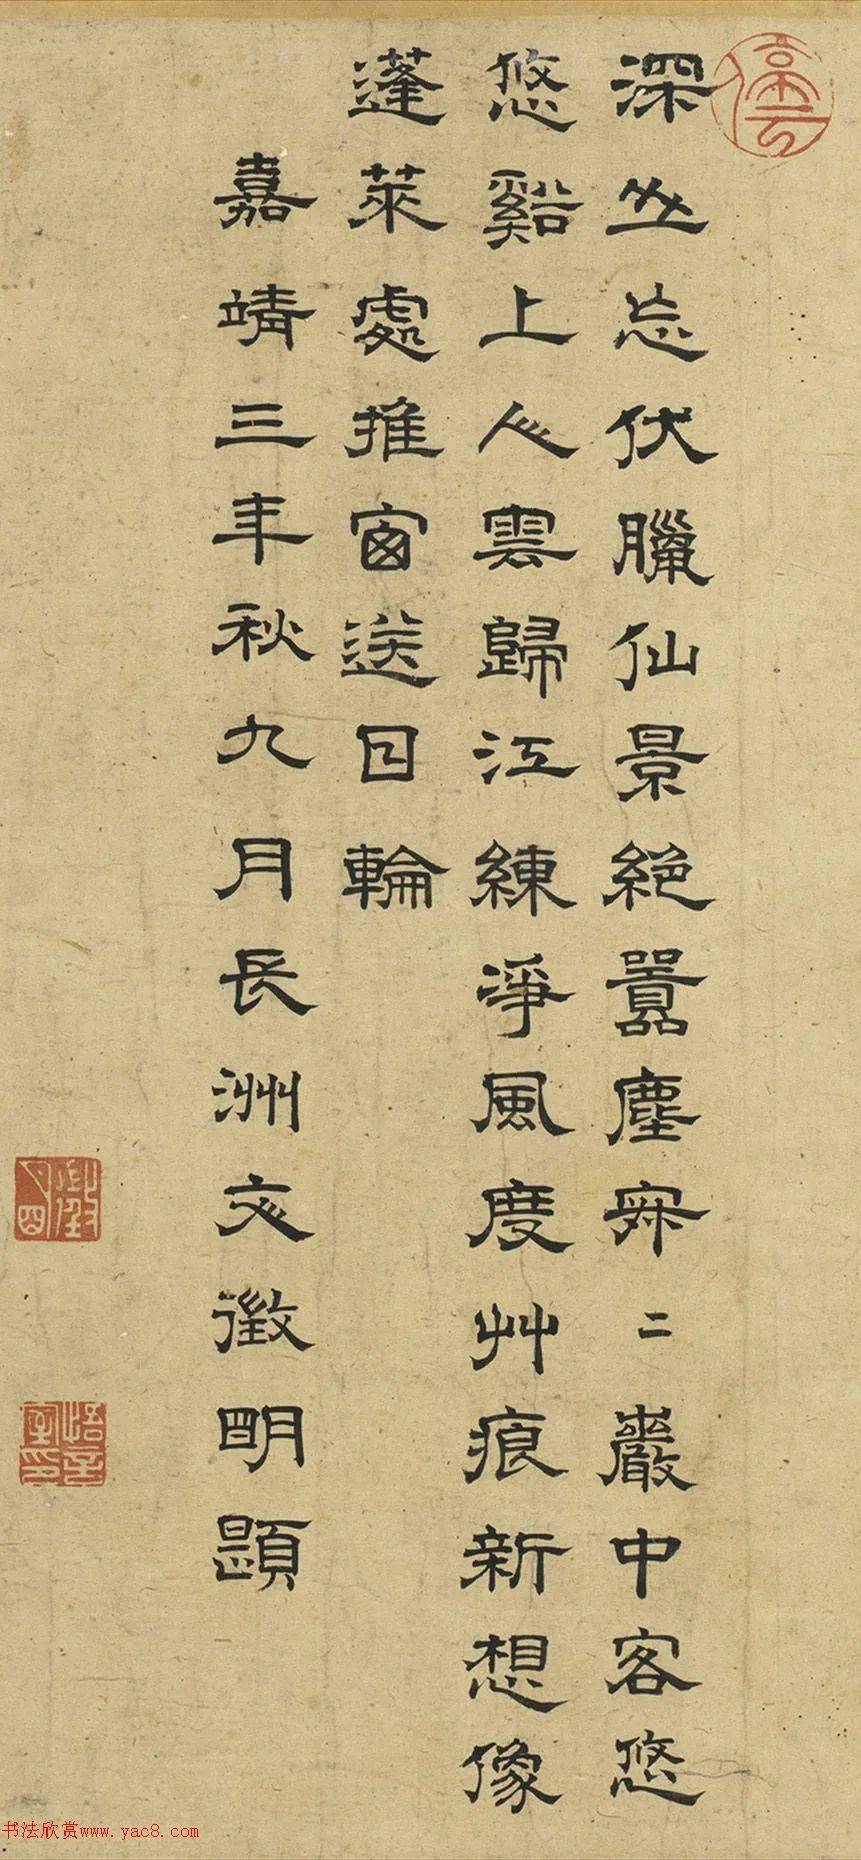 停雲
深丘忘伏臘仙景絕囂塵寂二巖中客悠
悠谿上人雲歸江練淨風度艸痕新想像
蓬萊處推窗送日輪
嘉靖三年秋九月長洲文徵明題
徵明
悟言室印
书法欣赏www.yac8.com